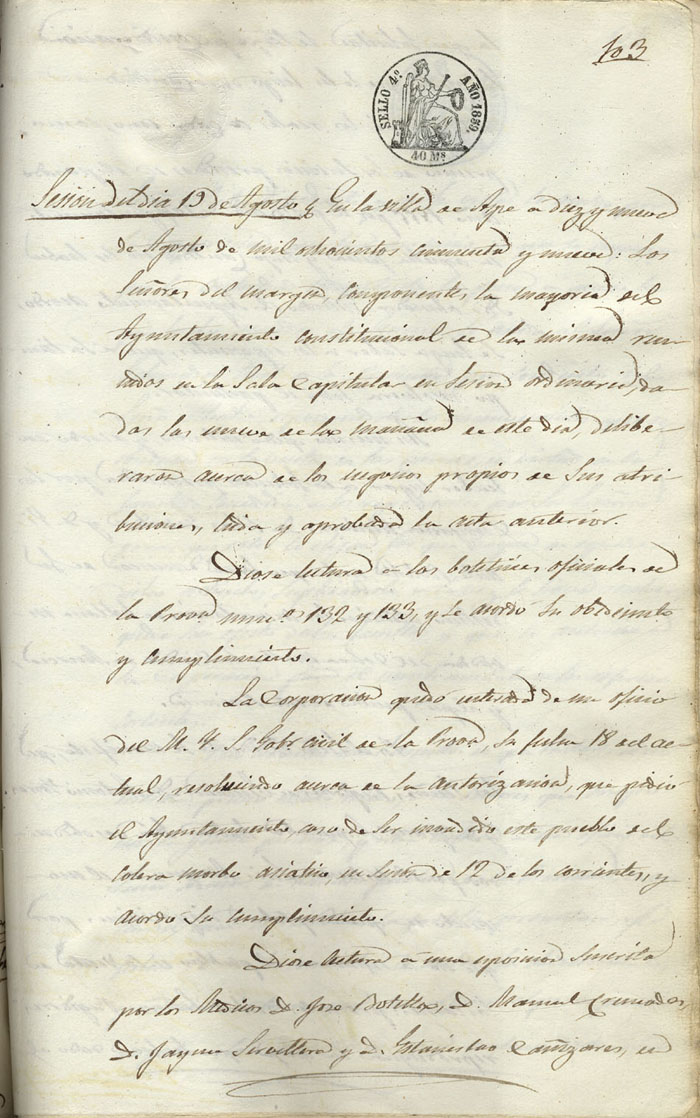 103
SELLO 4º. AÑO 1859.
40 Ms.
Sesion del dia 19 de Agosto En la villa de Aspe a diez y nueve
de Agosto de mil ochocientos cincuenta y nueve: Los
Señores del margen, componentes la mayoria del
Ayuntamiento constitucional de la misma reu-
nidos en la Sala Capitular en Sesion ordinaria, da-
das las nueve de la mañana de este dia, delibe-
raron acerca de los negocios propios de sus atri-
buciones, leida y aprobada la acta anterior.
Diose lectura a los boletines oficiales de
la Prova numos 132 y 133, y se acordo su obedcimto
y cumplimiento.
La Corporacion quedó enterada de un oficio
del M. Y. S. Gobr civil de la Prova, su fecha 18 del ac-
tual, resolviendo acerca de la autorizacion, que pidió
el Ayuntamiento, caso de ser invadido este pueblo del
colera morbo asiatico, en Sesion de 12 de los corrientes, y
acordo su cumplimiento.
Diose lectura a una esposicion suscrita
por los Medicos D. Jose Botella, D. Manuel Cremades,
D. Jayme Servillera y D. Estanislao Cañizares, en